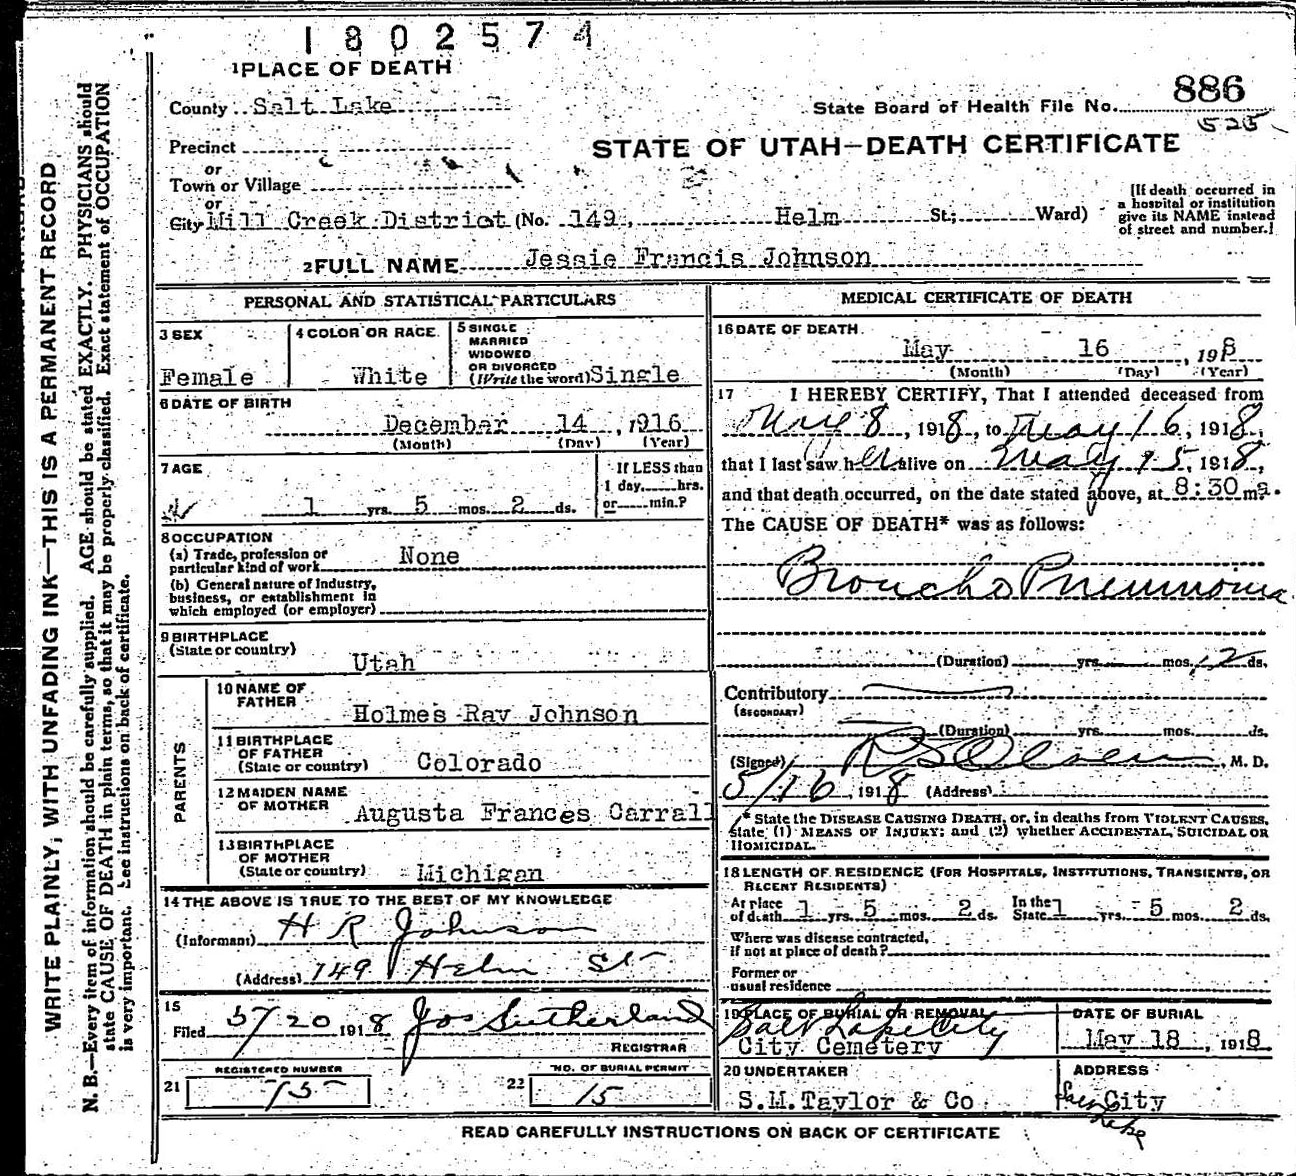 1802574
1 PLACE OF DEATH
County Salt Lake
State Board of Health File No. 886
525
Precinct
or
Town or Village
or
City Mill Creek District (No. 149, Helm St; Ward)
STATE OF UTAH—DEATH CERTIFICATE
[If death occurred in
a hospital or institution
give its NAME instead
of street and number.]
2 FULL NAME Jessie Francis Johnson
PERSONAL AND STATISTICAL PARTICULARS
3 SEX
Female
4 COLOR OR RACE
White
5 SINGLE
MARRIED
WIDOWED
OR DIVORCED
(Write the word) Single
6 DATE OF BIRTH
December 14, 1916
(Month) (Day) (Year)
7 AGE
1 yrs. 5 mos. 2 ds.
If LESS than
1 day, hrs.
or min.?
8 OCCUPATION
(a) Trade, profession or
particular kind of work None
(b) General nature of Industry,
business, or establishment in
which employed (or employer)
9 BIRTHPLACE
(State or country)
Utah
PARENTS
10 NAME OF
FATHER
Holmes Ray Johnson
11 BIRTHPLACE
OF FATHER
(State or country) Colorado
12 MAIDEN NAME
OF MOTHER
Augusta Frances Carrall
13 BIRTHPLACE
OF MOTHER
(State or country) Michigan
14 THE ABOVE IS TRUE TO THE BEST OF MY KNOWLEDGE
(Informant) H R Johnson
(Address) 149 Helm St
15
Filed 5/20 1918 Jos Sutherland
REGISTRAR
REGISTERED NUMBER
21 75
NO. OF BURIAL PERMIT
22 15
MEDICAL CERTIFICATE OF DEATH
16 DATE OF DEATH
May 16, 1918
(Month) (Day) (Year)
17 I HEREBY CERTIFY, That I attended deceased from
8, 1918, to May 16, 1918,
that I last saw her alive on May 15, 1918,
and that death occurred, on the date stated above, at 8:30 a m.
The CAUSE OF DEATH* was as follows:
Broncho Pneumonia
(Duration) yrs. mos. 12 ds.
Contributory
(SECONDARY)
(Duration) yrs. mos. ds.
(Signed) Olsen, M. D.
5/16, 1918 (Address)
* State the DISEASE CAUSING DEATH, or, in deaths from VIOLENT CAUSES,
state (1) MEANS OF INJURY; and (2) whether ACCIDENTAL, SUICIDAL OR
HOMICIDAL.
18 LENGTH OF RESIDENCE (FOR HOSPITALS, INSTITUTIONS, TRANSIENTS, OR
RECENT RESIDENTS)
At place
of death 1 yrs. 5 mos. 2 ds. In the
State 1 yrs. 5 mos. 2 ds.
Where was disease contracted,
if not at place of death?
Former or
usual residence
19 PLACE OF BURIAL OR REMOVAL
Salt Lake City
City Cemetery
DATE OF BURIAL
May 18, 1918
20 UNDERTAKER
S.M. Taylor & Co
ADDRESS
Salt Lake City
READ CAREFULLY INSTRUCTIONS ON BACK OF CERTIFICATE
WRITE PLAINLY, WITH UNFADING INK—THIS IS A PERMANENT RECORD
N. B.—Every item of information should be carefully supplied. AGE should be stated EXACTLY. PHYSICIANS should
state CAUSE OF DEATH in plain terms, so that it may be properly classified. Exact statement of OCCUPATION
is very important. See instructions on back of certificate.